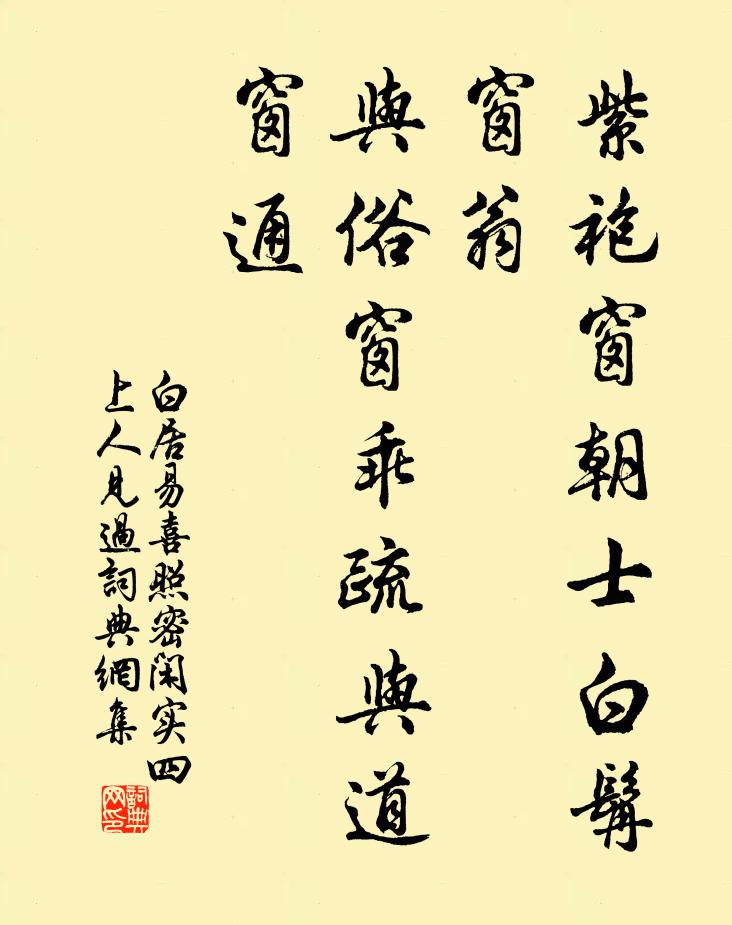 紫袍窗朝士白髯
窗翁
與俗窗乖疏與道
窗通
白居易喜照密閑实四
上人見過詞典網集
詞典
网印